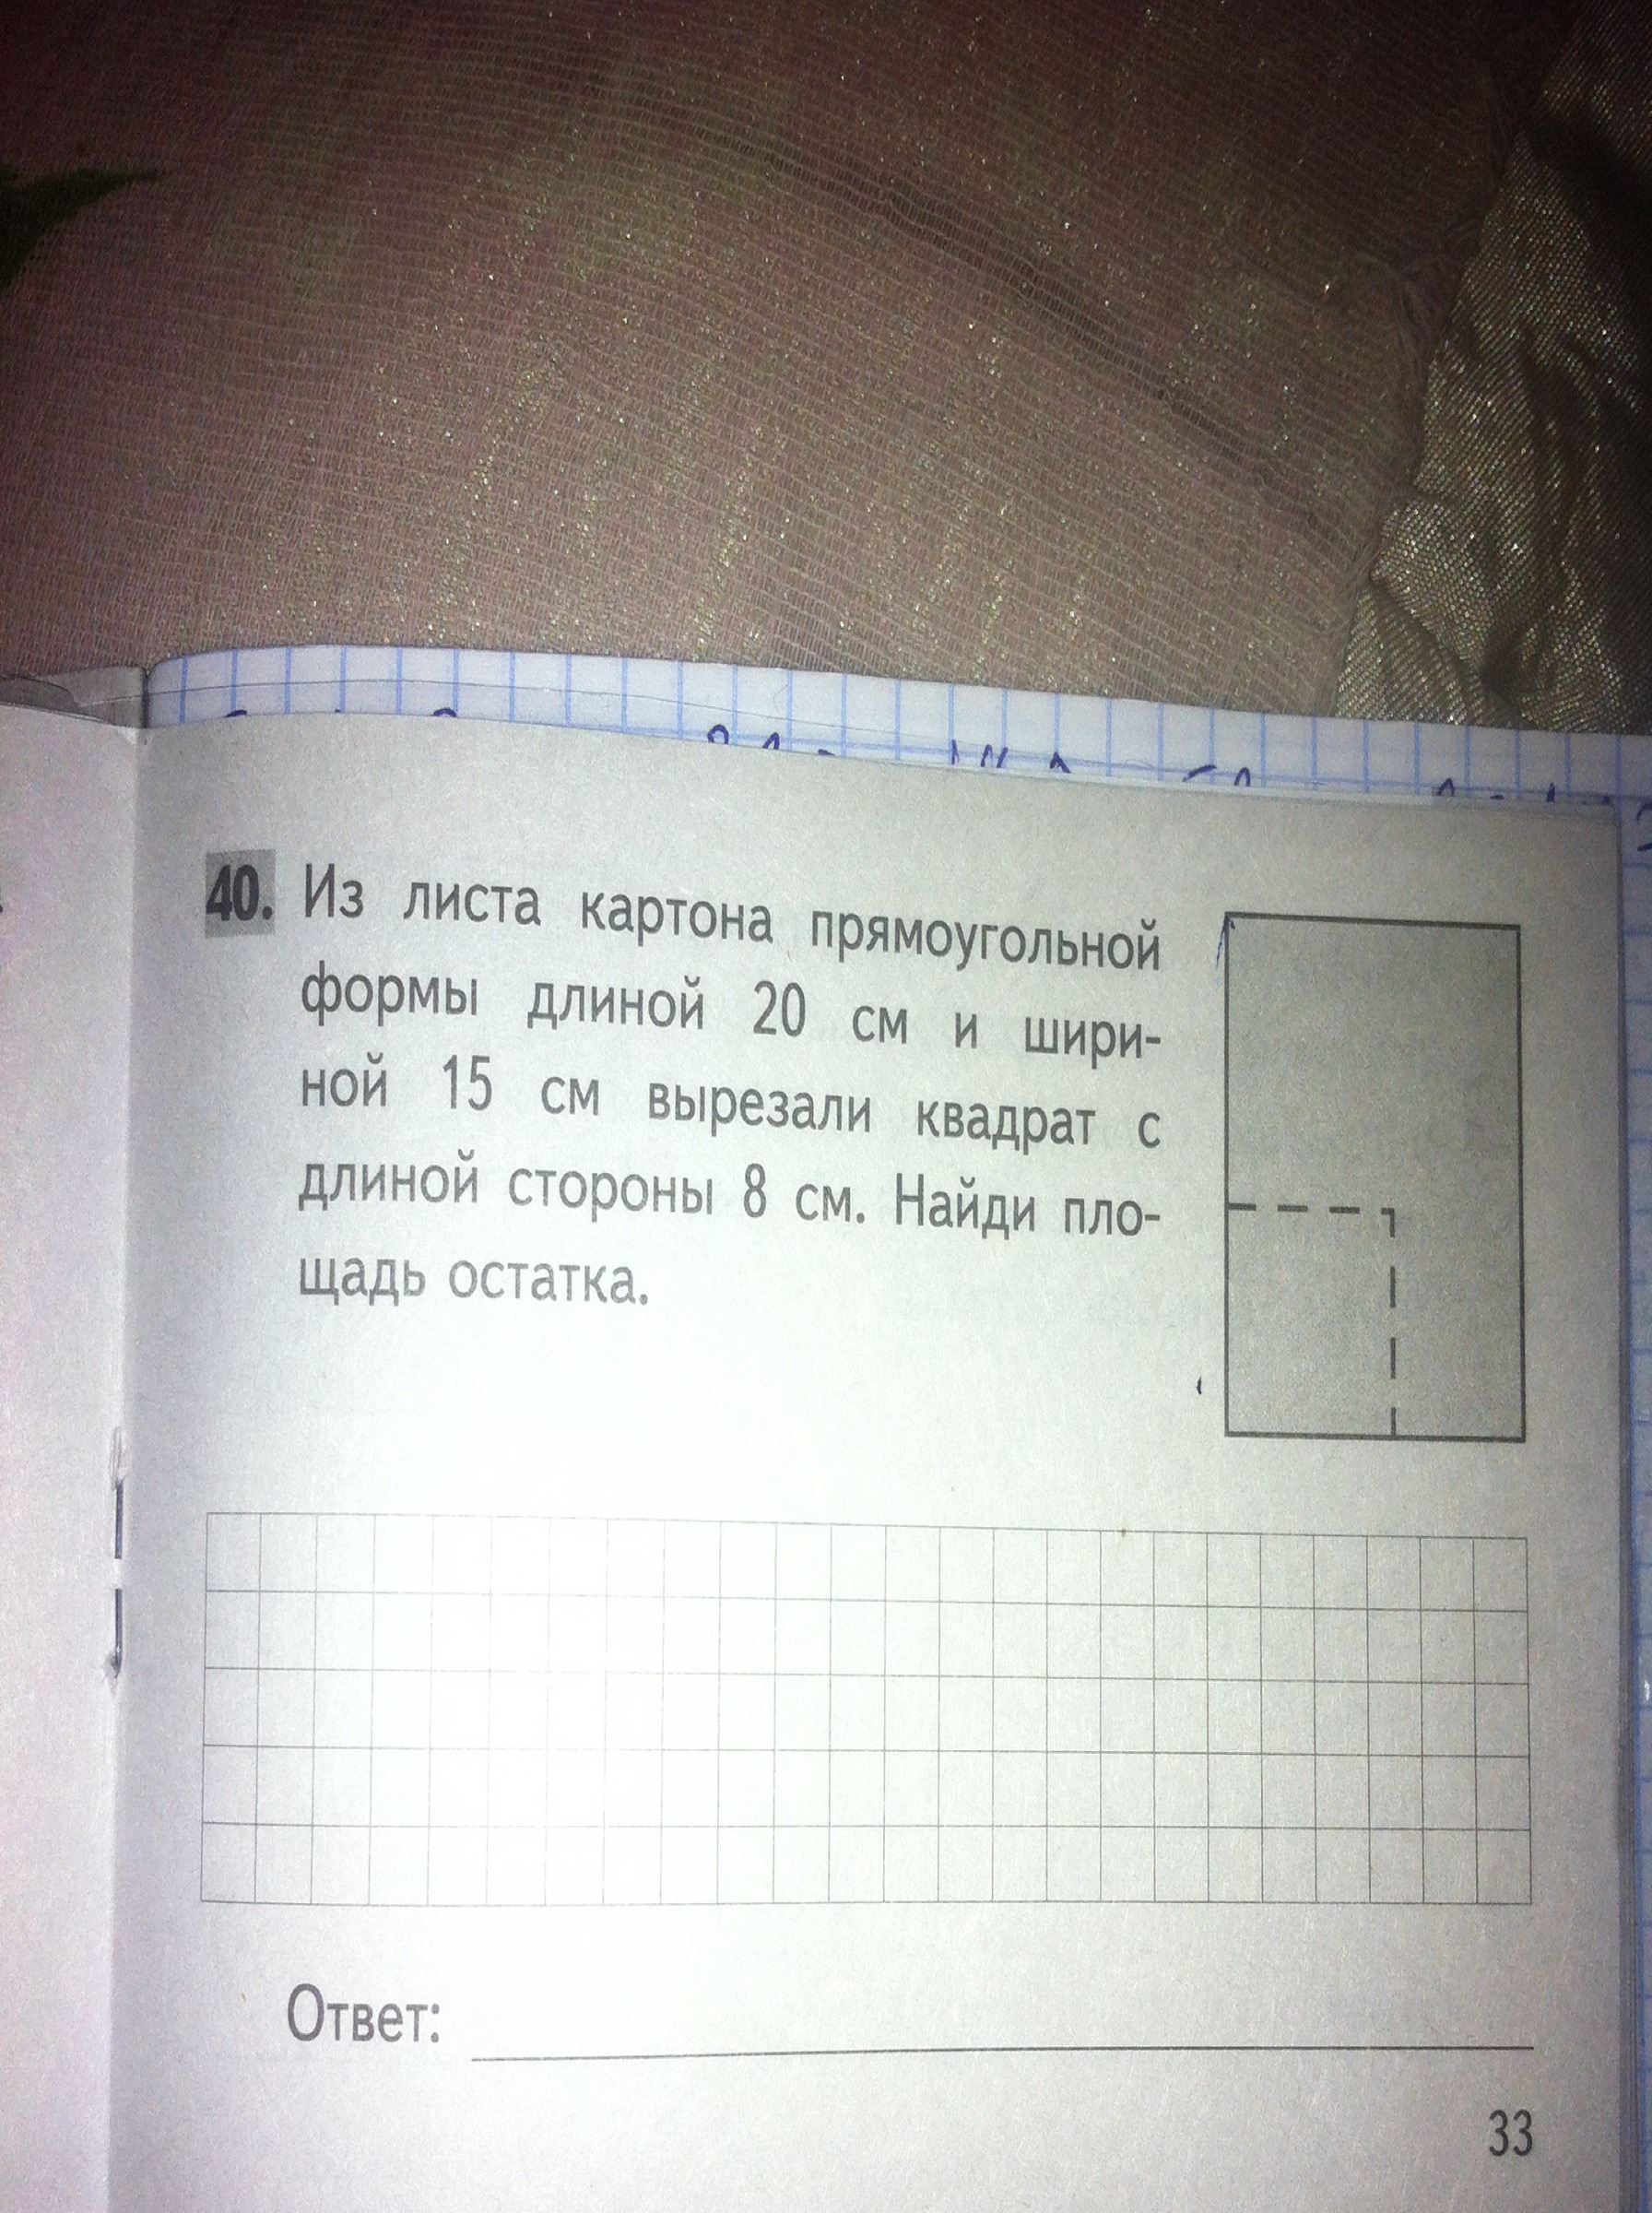 40. Из листа картона прямоугольной
формы длиной 20 см и шири-
ной 15 см вырезали квадрат с
длиной стороны 8 см. Найди пло-
щадь остатка.
Ответ:
33